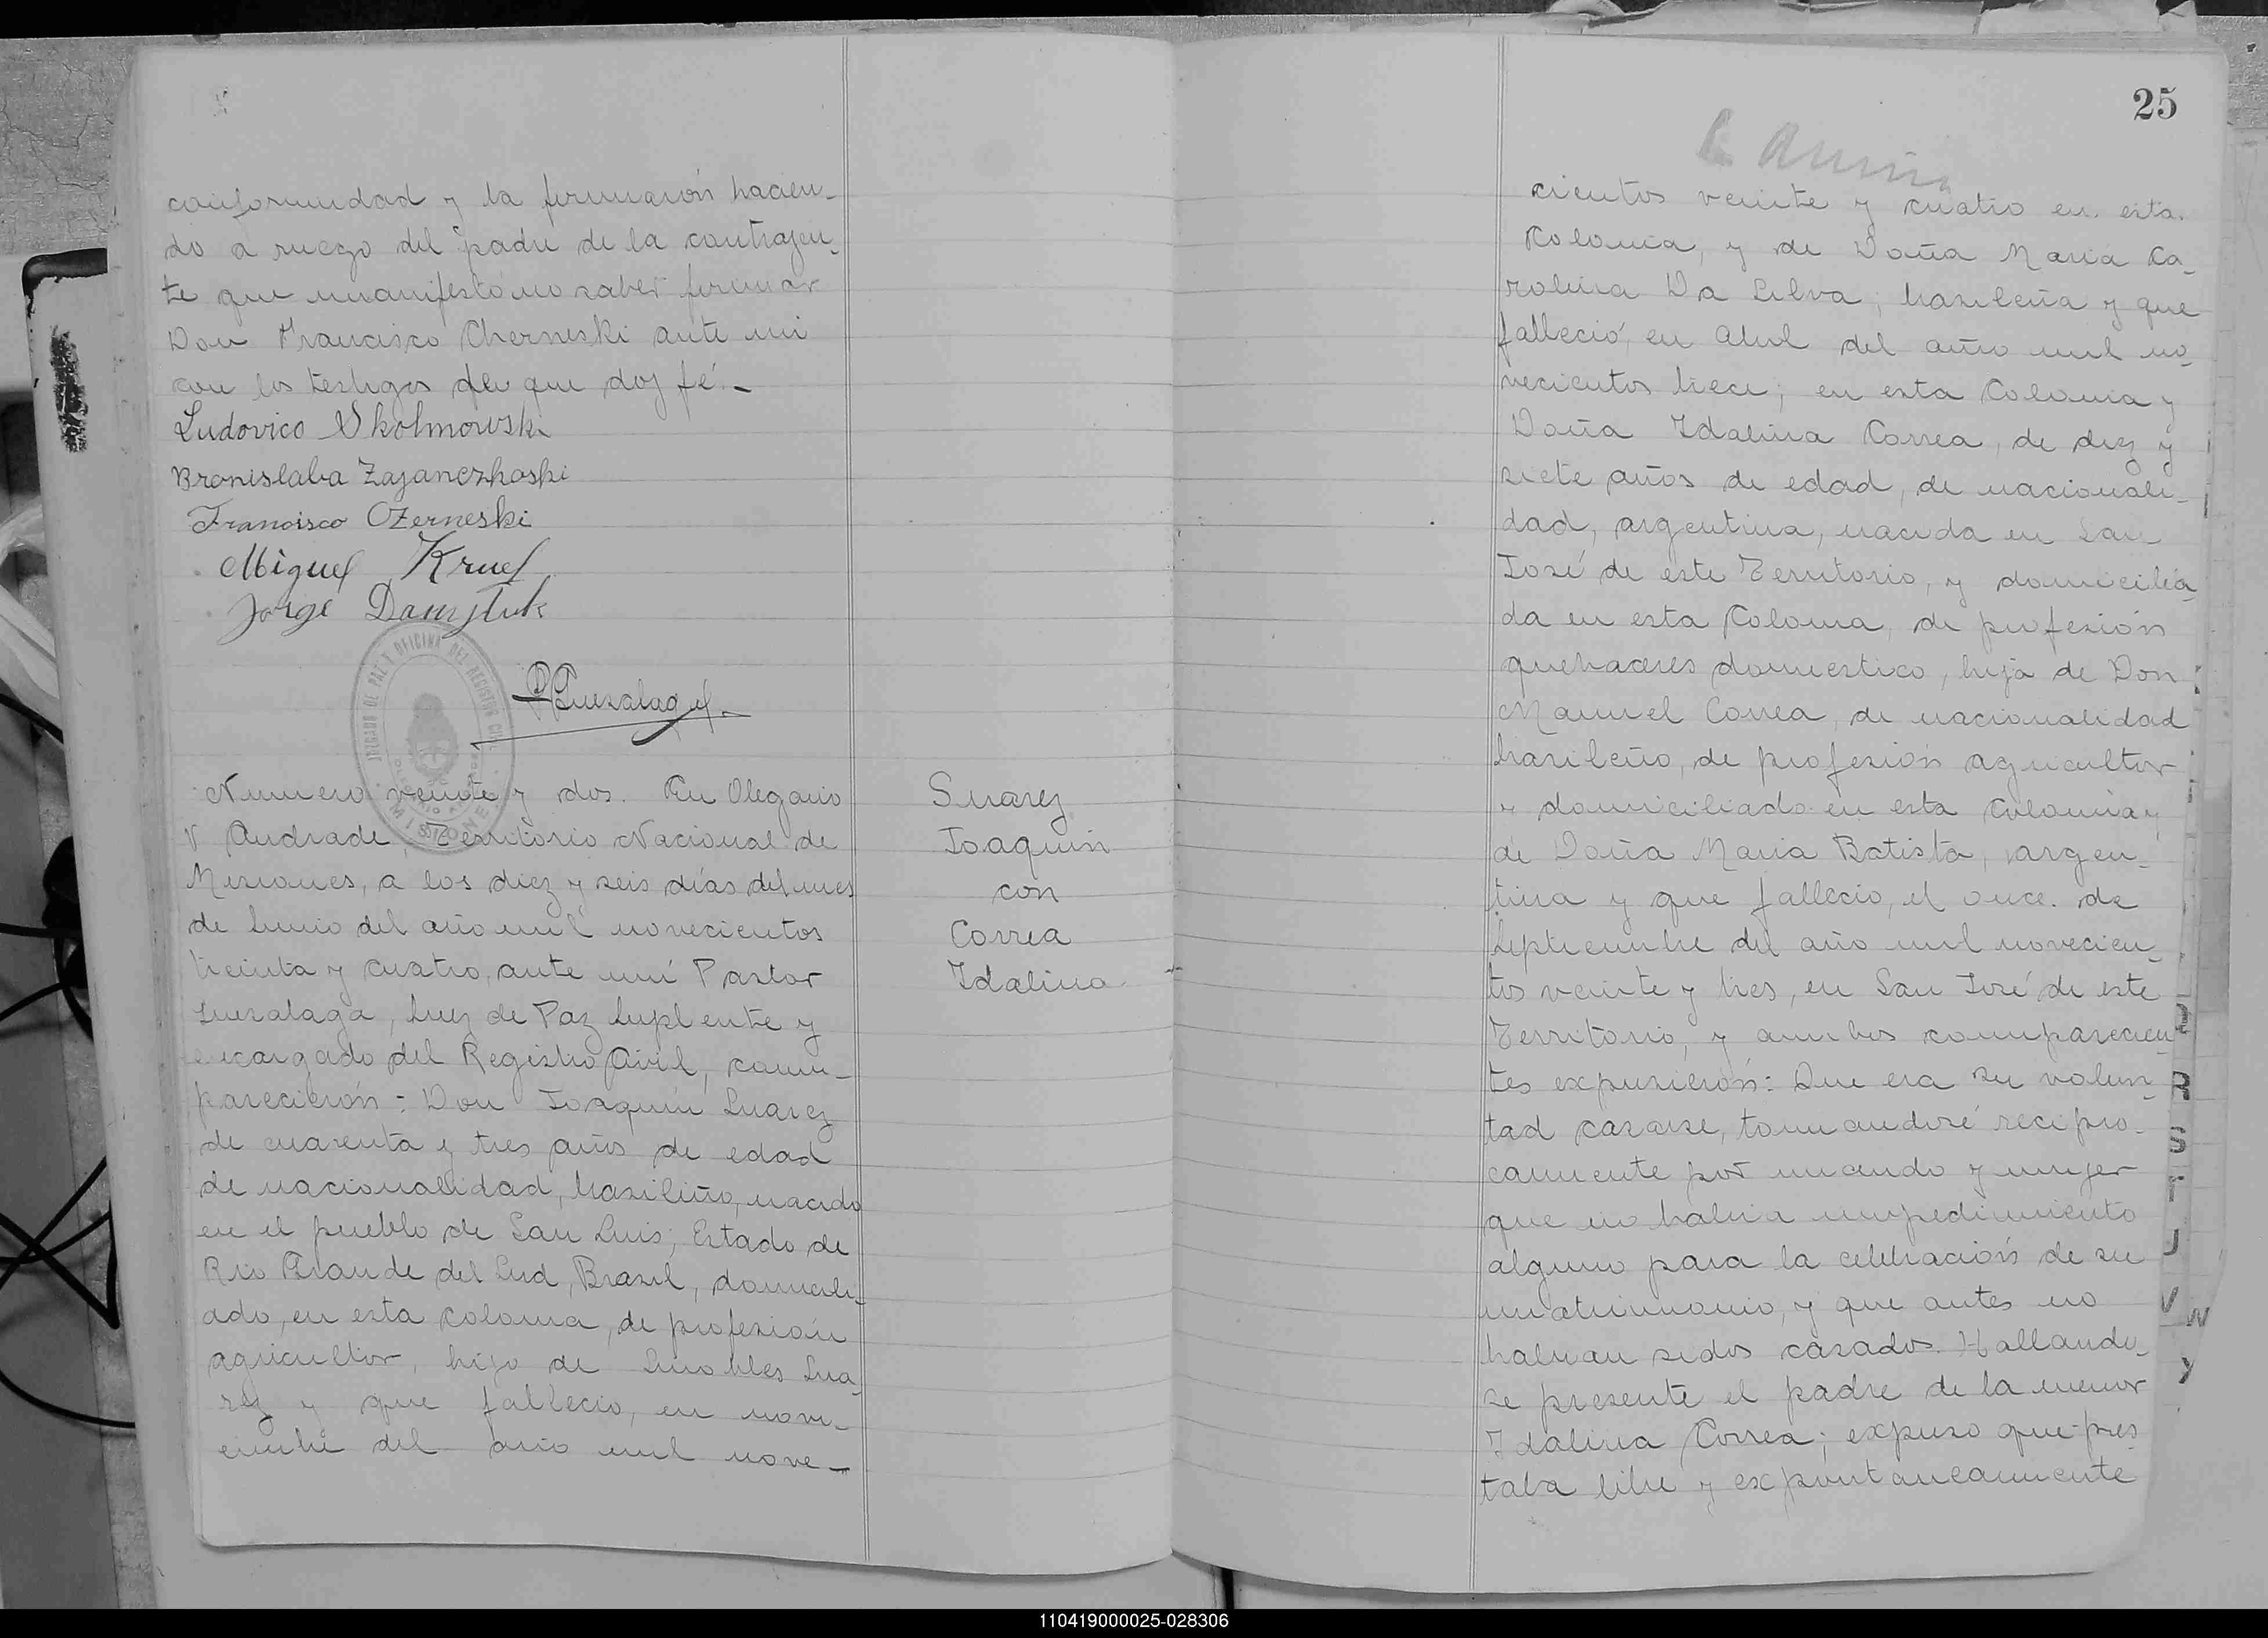 conformidad y la firmarón hacien-
do a ruego del padre de la contrajen-
te que manifesto no saber firmar
Don Francisco Cherneski ante mi
con los testigos de que doy fé.-
Ludovico Skolmowski
Bronislaba Zajanczkoski
Francisco Czerneski
Miguel Kruel
Jorge
JUZGADO DE PAZ Y OFICINA DEL REGISTRO CIVIL
MISIONES
Numero veinte y dos. En Olegario
V Andrade, Territorio Nacional de
Misiones, a los diez y seis días del mes
de Junio del año mil novecientos
treinta y cuatro, ante mí Pastor
Luzalaga, Juez de Paz Suplente y
encargado del Registro Civil, com-
parecierón: Don Joaquin Suarez
de cuarenta y tres años de edad
de nacionalidad, brasileño, nacido
en el pueblo de San Luis, Estado de
Rio Grande del Sud, Brasil, domicili-
ado, en esta colonia, de profesión
agricultor, hijo de Sua-
rez y que fallecio, en novi-
embre del año mil nove-
Suarez
Joaquin
con
Correa
Idalina
25
cientos veinte y cuatro en esta
Colonia, y de Doña Maria Ca-
rolina Da Silva, brasileña y que
falleció, en Abril del año mil no-
vecientos trece; en esta Colonia y
Doña Idalina Correa, de diez y
siete años de edad, de nacionali-
dad, argentina, nacida en San
José de este Territorio, y domicilia-
da en esta Colonia, de profesión
quehaceres domestico, hija de Don
Manuel Correa, de nacionalidad
brasileño, de profesión agricultor
y domiciliado en esta Colonia y
de Doña Maria Batista, argen-
tina y que fallecio, el once de
Septiembre del año mil novecien-
tos veinte y tres, en San José de este
Territorio, y ambos comparecien-
tes expusierón: Que era su volun-
tad casarse, tomandosé recipro-
camente por marido y mujer
que no habia impedimiento
alguno para la celebración de su
matrimonio, y que antes no
habian sidos casados. Hallando-
se presente el padre de la menor
Idalina Correa; expuso que pres-
taba libre y expontaneamente
R
S
J
V
W
Y
110419000025-028306